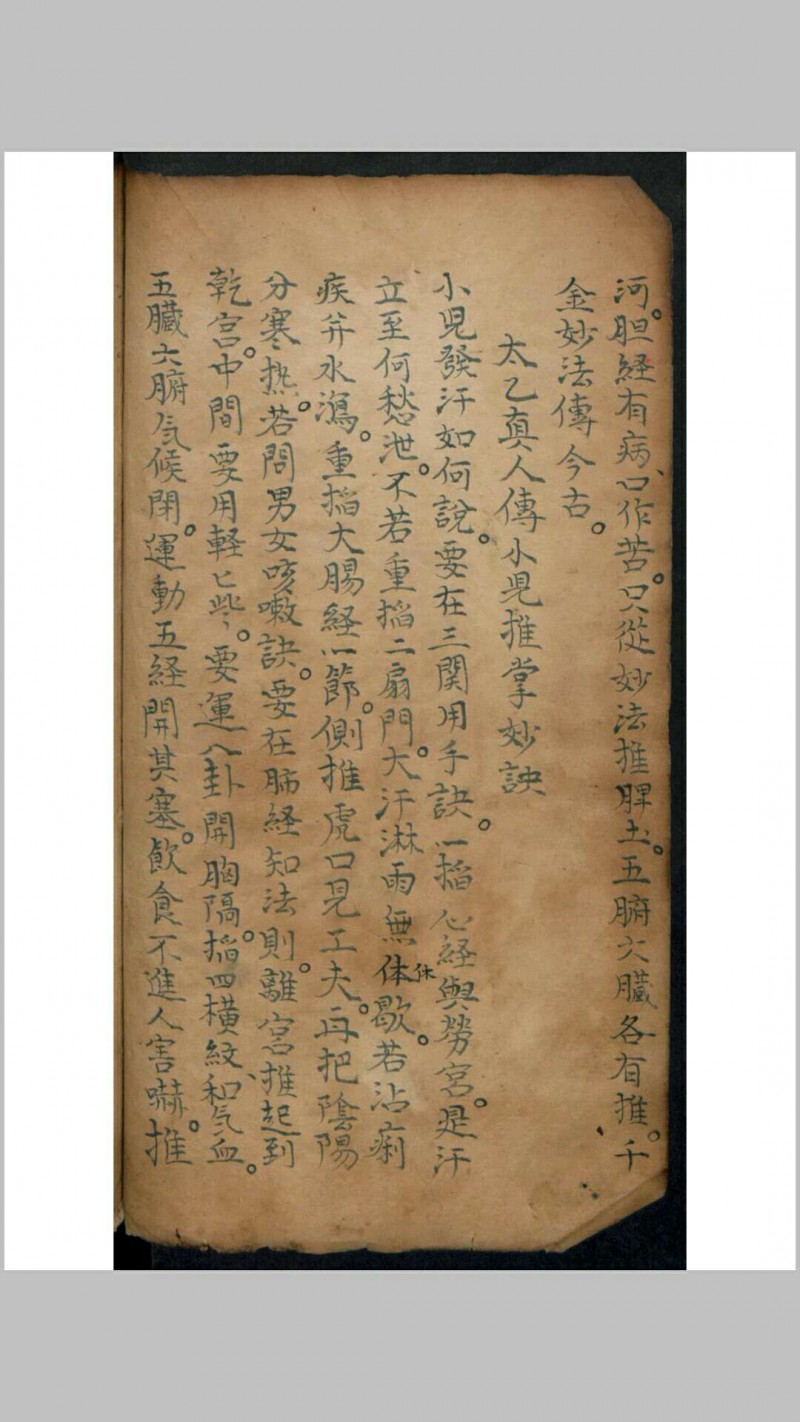 河。胆経有病、口作苦。只從妙法推脾土。五腑六臓各有推。千
金妙法傳今古。
太乙真人傳小児推掌妙訣
小児發汗如何說。要在三関用手訣。一掐心経與勞宮。是汗
立至何愁泄。不若重掐二扇門。大汗淋雨無体休歇。若沾痢
疾并水瀉。重掐大腸経一節。側推虎口見工夫。再把陰陽
分寒热。若問男女咳嗽訣。要在肺経知法則。離宮推起到
乾宮。中間要用軽匕些〻。要運八卦開胸隔。掐四橫紋、和气血。
五臓六腑气候閉。運動五経開其塞。飲食不進人害嚇。推